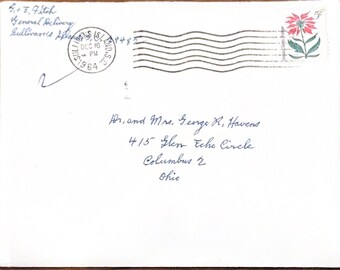 G. + E. Fitch
General Delivery
Sullivan's
SULLIVAN'S ISLAND, S.C.
DEC 10
PM
1964
5¢
Dr. and Mrs. George R. Havens
415 Glen Echo Circle
Columbus 2
Ohio